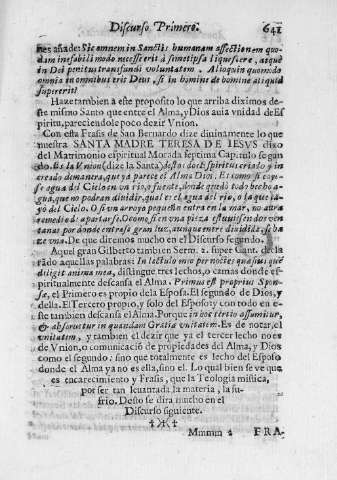 Discurso Primero. 641
nes añade: Sic omnem in Sanctis humanam affectionem quo-
dam inefabili modo necesse erit à semetipsa liquescere, atque
in Dei penitus transfundi voluntatem. Alioquin quomodo
omnia in omnibus erit Deus, si in homine de homine aliquid
supererit?
Haze tambien à este proposito lo que arriba diximos de
ste mismo Santo que entre el Alma, y Dios auia vnidad de Es-
piritu, pareciendole poco dezir Vnion.
Con esta Frasis de San Bernardo dize diuinamente lo que
nuestra SANTA MADRE TERESA DE IESVS dixo
del Matrimonio espiritual Morada septima Capitulo segun
do. Es la Vnion (dize la Santa) destos dos Espiritus criado, y in
creado demanera, que ya parece el Alma Dios. Es como si ca-
yesse agua del Cielo en vn rio, o fuente, donde quedò todo hecho a-
gua, que no podran diuidir, qual es el agua del rio, o la que ca-
yò del Cielo. O si vn arroyo pequeño entra en la mar, no aura
remedio de apartarse. O como si en vna pieza estuuiessen dos ven
tanas por donde entrasse gran luz, aunque entre diuidida, se ha
ze vna. De que diremos mucho en el Discurso segundo.
Aquel gran Gilberto tambien Serm. 2. super Cant. de la
rado aquellas palabras: In lectulo meo per noctes quæsiui quē
diligit anima mea, distingue tres lechos, o camas donde es-
piritualmente descansa el Alma. Primus est proprius Spon-
sæ, el Primero es propio de la Esposa. El segundo de Dios, y
della. El Tercero propio, y solo del Esposo: y con todo en e-
ste tambien descansa el Alma. Porque in hoc tertio assumitur,
& absorbetur in quandam Gratiæ vnitatem. Es de notar, el
vnitatem, y tambien el dezir que ya el tercer lecho no es
de Vnion, o comunicaciō de propiedades del Alma, y Dios
como el segundo: sino que totalmente es lecho del Esposo
donde el Alma ya no es ella, sino el. Lo qual bien se ve que
es encarecimiento y Frasis, que la Teologia mistica,
por ser tan leuantada la materia, la su-
frio. Desto se dira mucho en el
Discurso siguiente.
Mmmm 2 FRA-